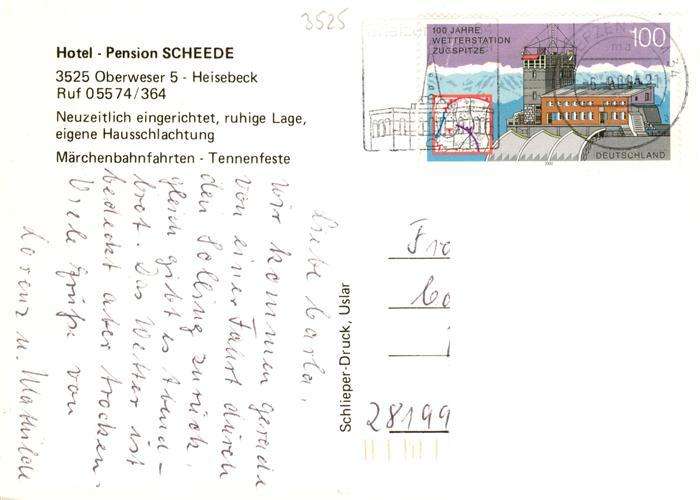 3525
Hotel - Pension SCHEEDE
3525 Oberweser 5 - Heisebeck
Ruf 05574/364
Neuzeitlich eingerichtet, ruhige Lage,
eigene Hausschlachtung
Märchenbahnfahrten - Tennenfeste
Liebe Carla,
wir kommen gerade
von einer Fahrt durch
den Solling zurück,
gleich gibt es Abend-
brot. Das Wetter ist
bedeckt aber trocken.
Viele Grüße von
Lorenz u. Mathilde
Schlieper-Druck, Uslar
100 JAHRE
WETTERSTATION
ZUGSPITZE
100
DEUTSCHLAND
2000
Fra
Ca
28199